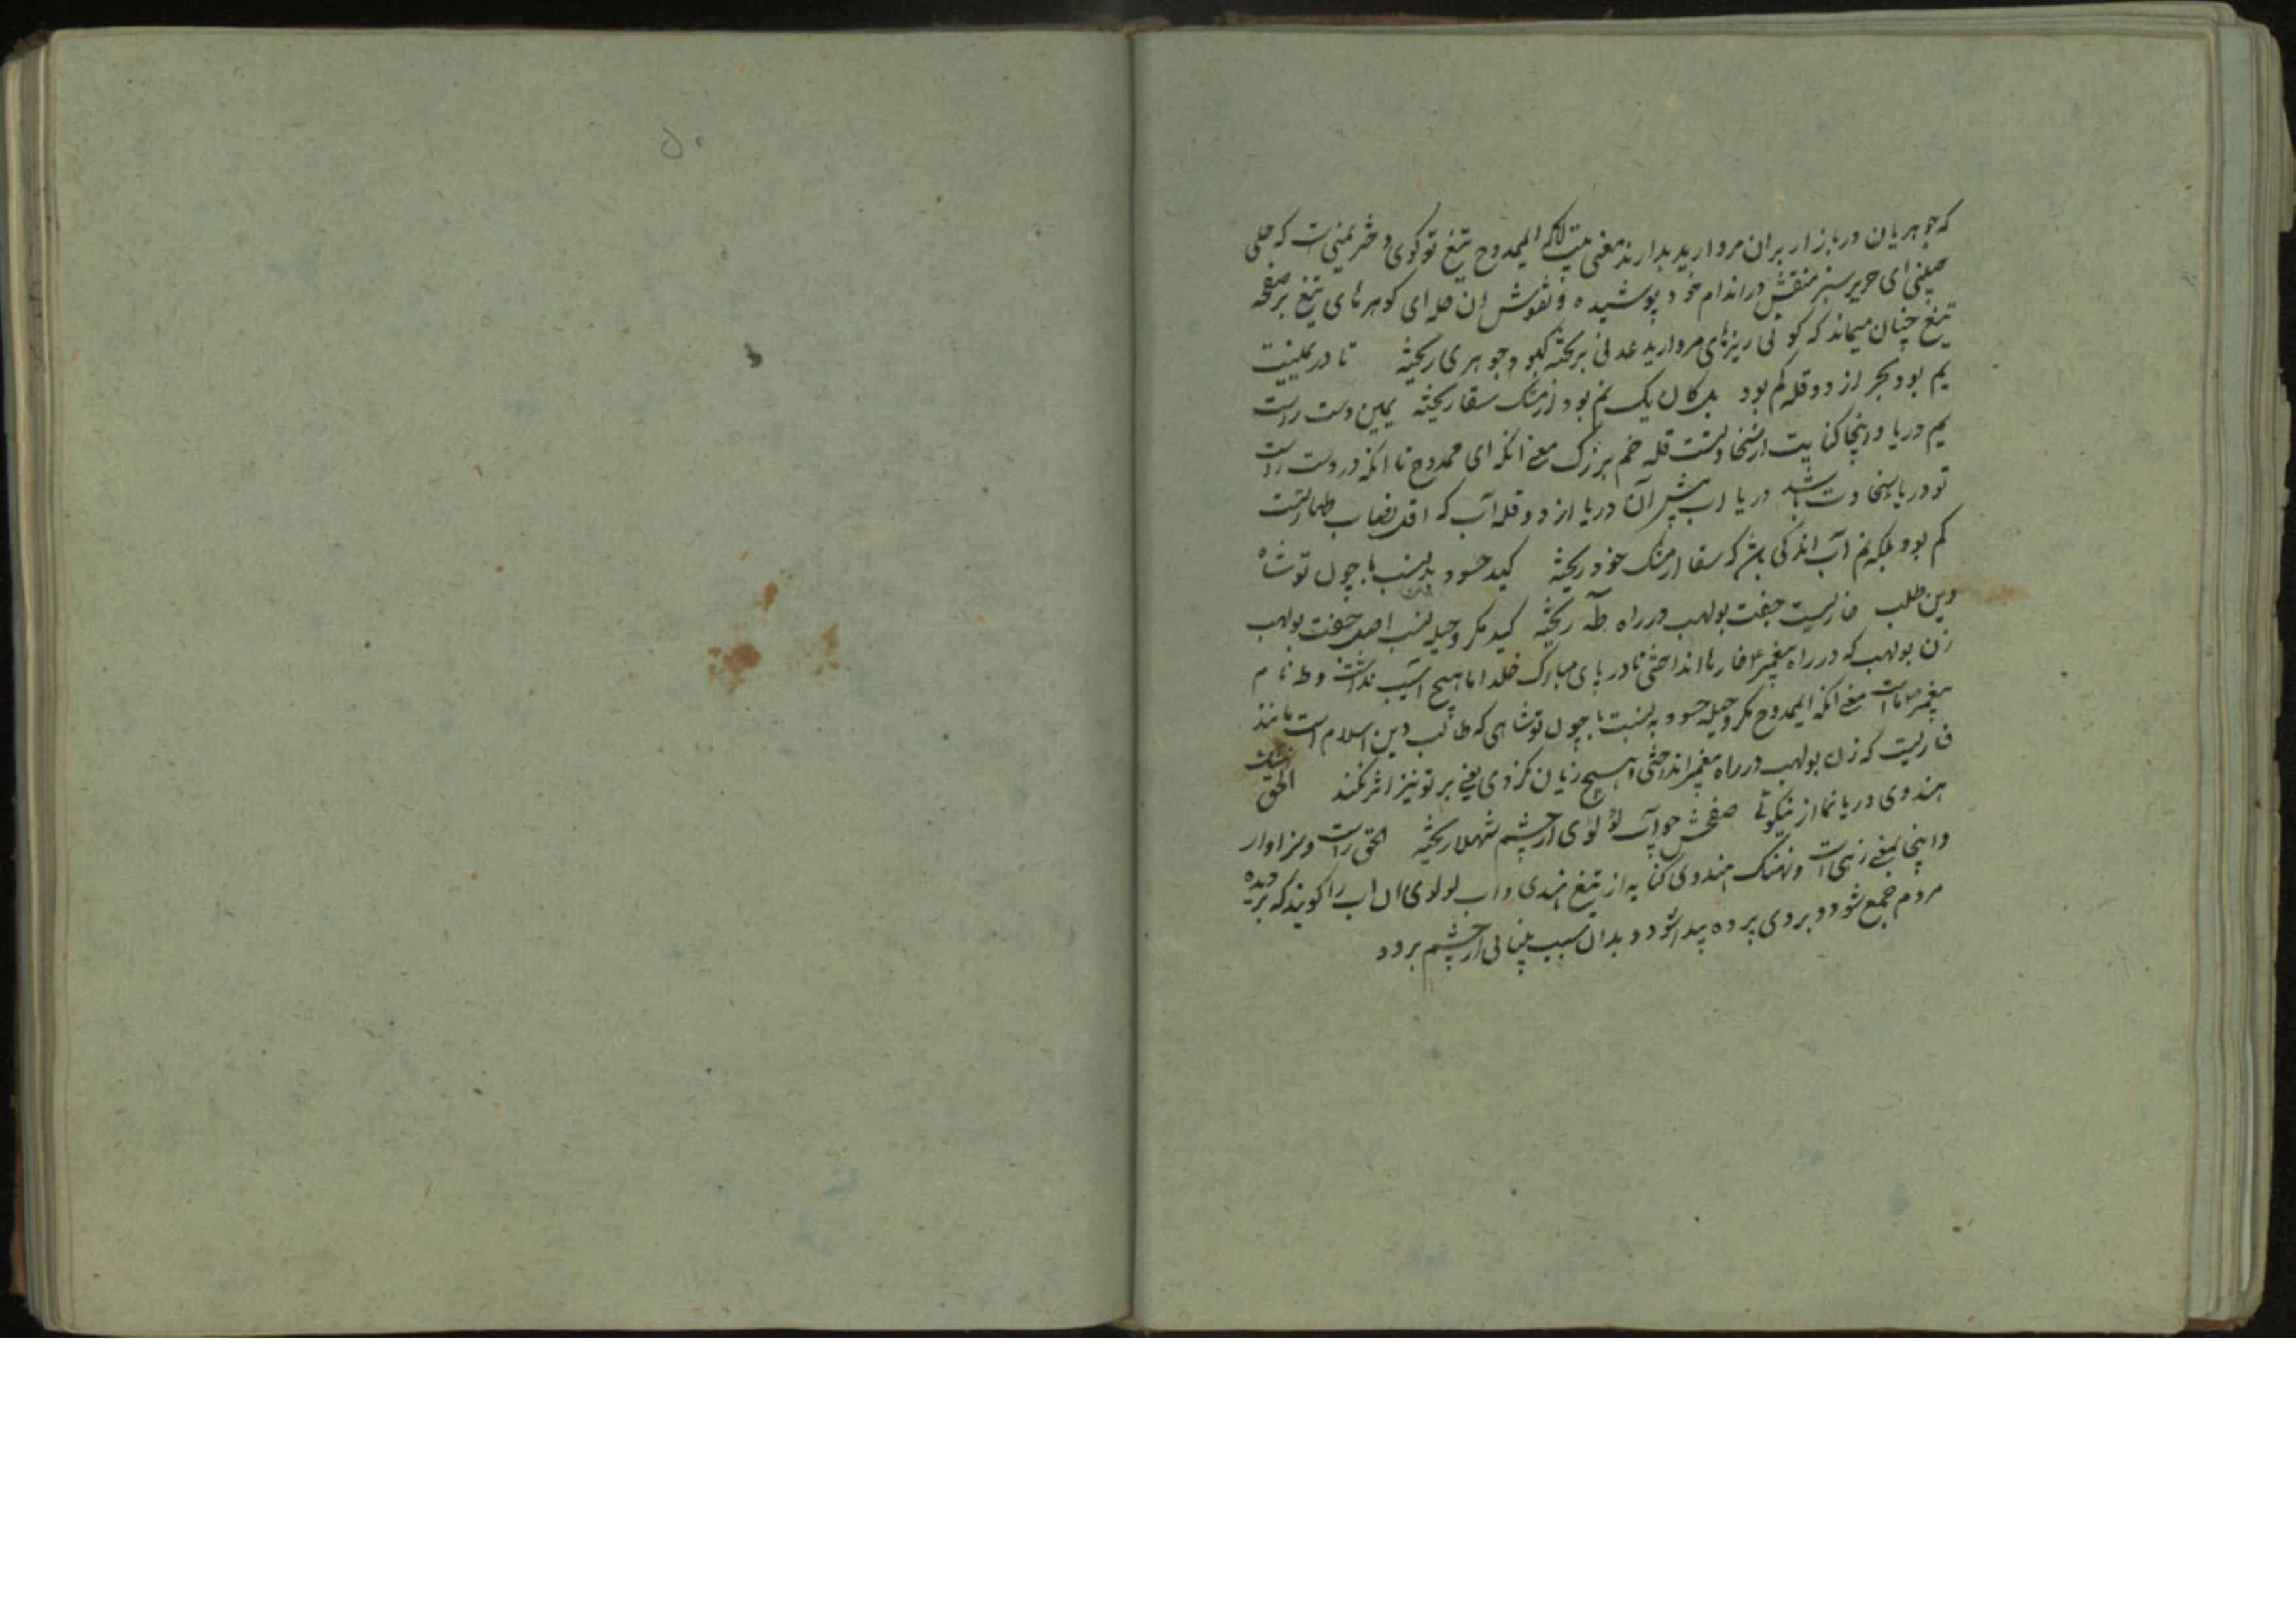 که جوهریان در بازار بران مروارید بدارند معنی بیت آنکه ایممدوح تیغ تو کوی دختر یمنی است که حلی
صینی ای حریر سبز منقش در اندام خود پوشیده و نقوش ان حله ای کوهرهای تیغ بر صفحه
تیغ چنان میماند که کوئی ریزهای مروارید عدنی بریخته جوهری ریخته تا در یمینت
یم بود بحر از دو قله کم بود بل کان یک نم بود از مشک سقا ریخته یمین دست راست
یم دریا و اینجا کنایت از سخاوتست قله خم بزرک معنی انکه ای ممدوح تا انکه در دست راست
تو دریا سخاوت باشد دریا اب پیش آن دریا از دو قله آب که اقل نصاب طهارتست
کم بود بلکه نم آب اندکی باشد که سقا از مشک خود ریخته کید حسود بد نسب با چون تو شاه
دین طلب خاریست جفت بولهب در راه طٓه ریخته کید مکر و حیله نسب اصل جفت بولهب
زن بولهب که در راه پیغمبر خارها انداختی تا در پای مبارک خلد اما هیچ آسیب نداشت و طه نام
پیغمبر ماست معنی انکه ایممدوح مکر و حیله حسود به نسبت با چون تو شاهی که طالب دین اسلام است مانند
خاریست که زن بولهب در راه پیغمبر انداختی و هیچ زیان نکردی یعنی بر تو نیز اثر نکند الحق نهنک
هندوی دریا نما از نیکوئی صفحش چو آب لؤلؤی از چشم شهلا ریخته الحق راست و سزاوار
و اینجا بمعنی زهی است و نهنک هندوی کنایه از تیغ هندی و اب لولوی ان اب را کویند که بر دیده
مردم جمع شود و بر وی پرده پیدا شود و بدان سبب بینائی از چشم برود